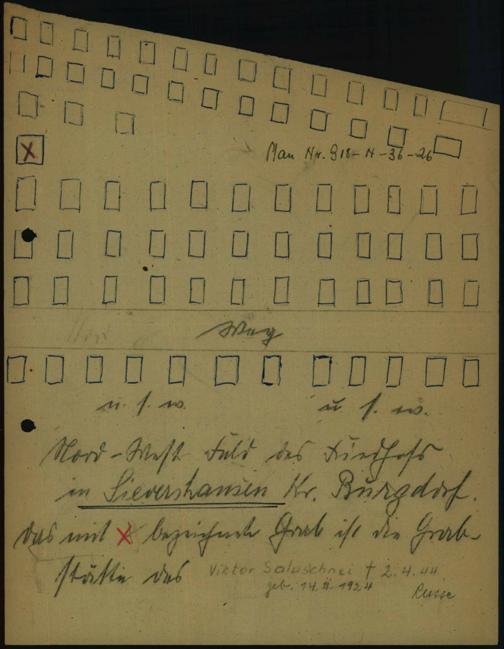 X
Plan Nr. G18-N-36-26
Weg
u. s. w. u. s. w.
Nord-West Feld des Friedhofs
in Sievershausen Kr. Burgdorf.
das mit X bezeichnete Grab ist die Grab-
stätte des Viktor Saluschnei † 2.4.44
geb. 14.II.1924 Russe